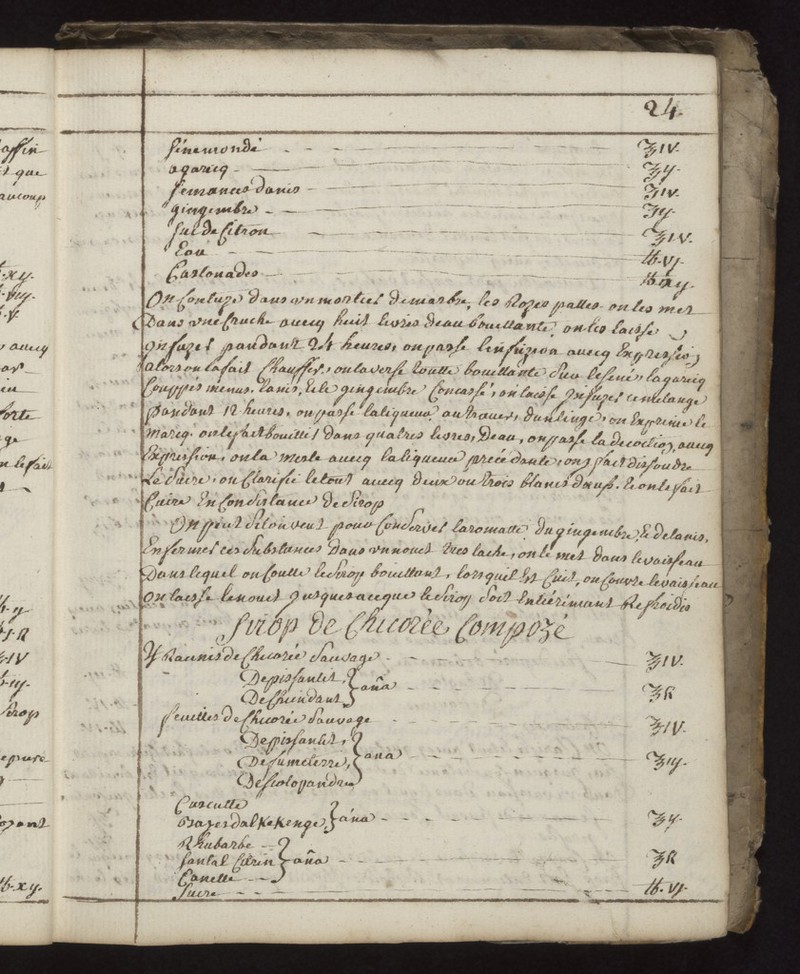 24
Sénemondé - - - ʒIV.
agaricq - ʒij.
Semances danis - ʒIV.
gingembre - - ʒij.
Suc de Citron - ʒIV.
Eau - lb. vj.
Castonades - lb.
On Contuze dans un mortier de marbre, les Rozes palles on les met
Dans une Cruche avecq huit livres deau bouillante, on les laisse
Infuzer pandant 24 heures, on passe linfuzion avecq Expression,
alors on la fait Chauffer, on la verse toutte bouillante sur le séné, lagaricq
Couppés menus, lanis, & le gingembre Concassé, on laisse Infuzer ce melange
pandant 12 heures, on passe la liqueur au travers dun linge, on Exprime le
marcq, on le fait bouillir dans quatres livres Deau, on passe la decoction, avecq
Expression, on la mesle avecq la liqueur precedante, on y fait dissoudre
Le Sucre, on Clarifie le tout avecq deux ou trois blancs dœufs. & on le fait
Cuire En Consistance De Sirop
On peut si lon veut pour Conserver laromatte du gingembre, & de lanis,
Enfermer ces Substances Dans un nouet tres lache, on le met dans le vaisseau
Dans lequel on Coulle le Sirop bouillant, lorsquil Est Cuit, on Couvre le vaisseau
on laisse le nouet Jusques aceque le Sirop Soit Entiérémant Refroidis
Sirop De Chicorée Compozé
♃ Racinés de Chicorée Sauvage - - ʒIV.
De pissanlit,
De Chiendant } ana - - ʒß
feuilles de Chicorée Sauvage - - ʒIV.
De pissanlit,
De fumeterre, } ana - - ʒiij.
De Scolopandre
Cuscutte
Bayes dalkeKenge, } ana - - ʒij.
Rhubarbe -
Santal Citrin } ana - - ʒß
Canelle -
Sucre - - lb. vj.